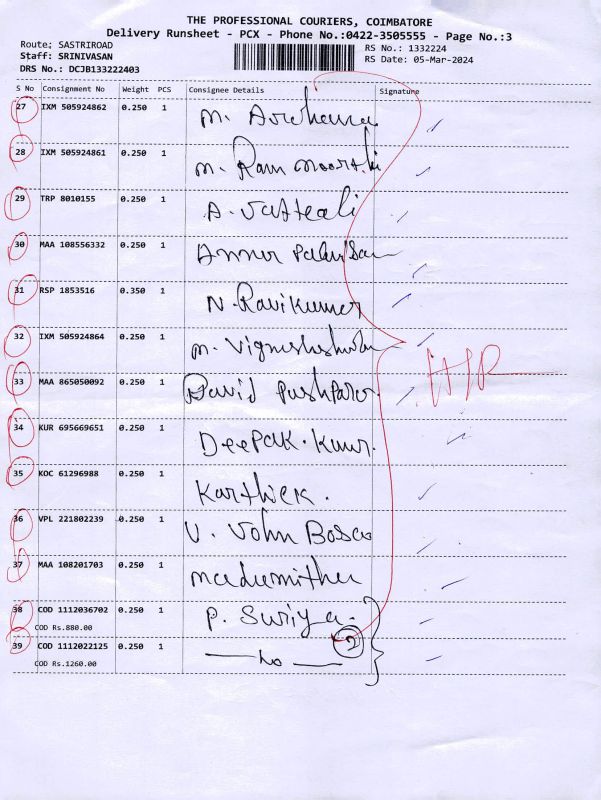 THE PROFESSIONAL COURIERS, COIMBATORE
Delivery Runsheet - PCX - Phone No.:0422-3505555 - Page No.:3
Route: SASTRIROAD RS No.: 1332224
Staff: SRINIVASAN RS Date: 05-Mar-2024
DRS No.: DCJB133222403
S No Consignment No Weight PCS Consignee Details Signature
27 IXM 505924862 0.250 1 M. Archana
28 IXM 505924861 0.250 1 M. Ram moorthi
29 TRP 8010155 0.250 1 A.
30 MAA 108556332 0.250 1
31 RSP 1853516 0.350 1 N. Ravikumar
32 IXM 505924864 0.250 1 M.
33 MAA 865050092 0.250 1 David
34 KUR 695669651 0.250 1 Deepak. Kumar.
35 KOC 61296988 0.250 1 Karthick.
36 VPL 221802239 0.250 1 V. John Bosco
37 MAA 108201703 0.250 1 madumitha
38 COD 1112036702 0.250 1 P. Suriya.
COD Rs.880.00
39 COD 1112022125 0.250 1 2
COD Rs.1260.00